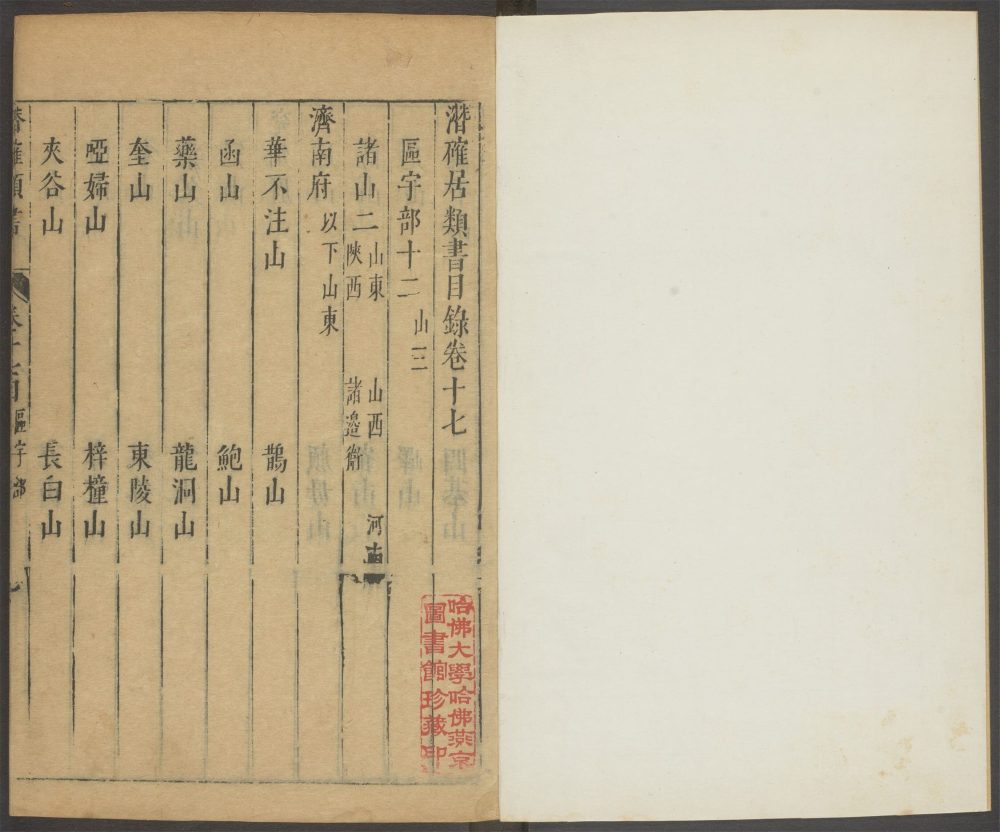 潛確居類書目錄卷十七
區宇部十二 山三
諸山二 山東 山西 河南
陝西 諸邊衛
濟南府 以下山東
華不注山 鵲山
函山 鮑山
藥山 龍洞山
奎山 東陵山
啞婦山 梓橦山
夾谷山 長白山
潛確類書 卷十七 區宇部
哈佛大學哈佛燕京
圖書館珍藏印